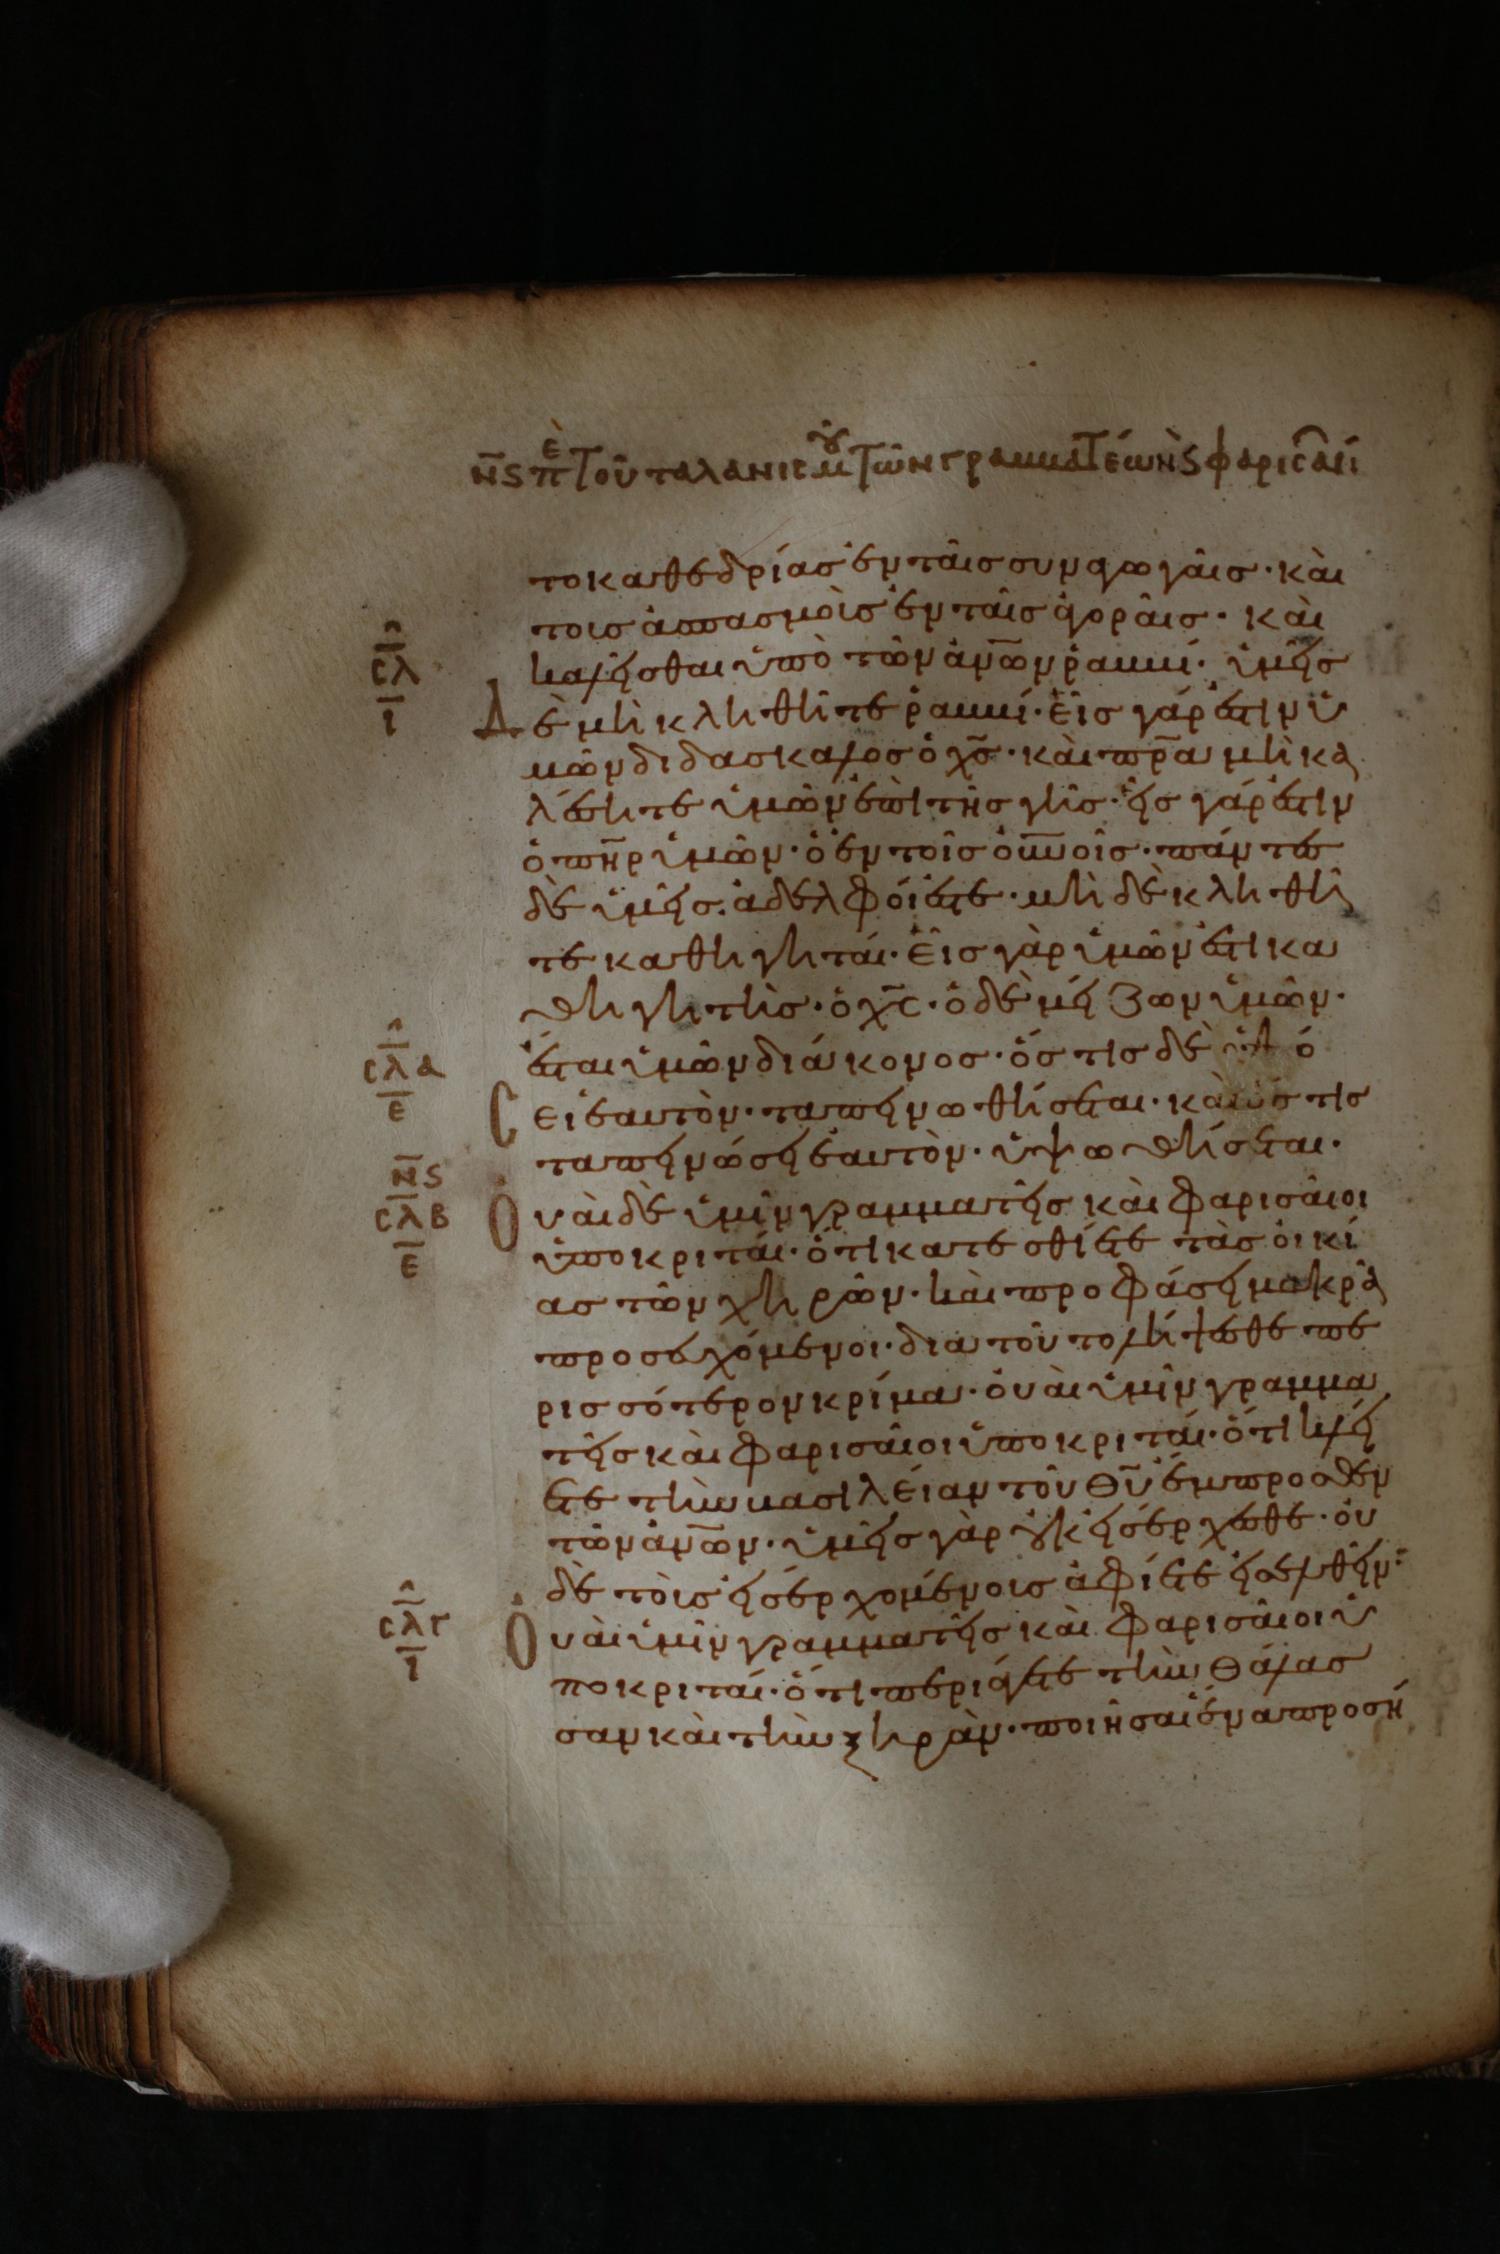 ν̅ς̅ πὲ τοῦ ταλανισμοῦ τῶν γραμματέων ς̀ φαρισαί
τοκαθεδρίας ἐν ταῖς συναγωγαῖς· καὶ
τοις ἀσπασμοὶς ἐν ταῖς ἀγοραῖς· καὶ
καλεῖσθαι ὑπὸ τῶν ἀν̅ω̅ν ῥαββί· ὑμεῖς
σ̅λ̅
ι̅
Δὲ μὴ κληθῆτε ῥαββί· εἷς γάρ ἐστιν ὑ
μῶν διδάσκαλος ὁ χ̅ς̅· καὶ π̅ρ̅α μὴ κα
λέσητε ὑμῶν ἐπὶ τῆς γῆς· εἷς γάρ ἐστιν
ὁ π̅η̅ρ ὑμῶν· ὁ ἐν τοῖς ο̅υ̅ν̅οῖς· πάντες
δὲ ὑμεῖς ἀδελφοί ἐστε· μὴ δὲ κληθῆ
τε καθηγηταί· εἷς γὰρ ὑμῶν ἐστι κα
θηγητὴς· ὁ χ̅ς̅· ὁ δὲ μείζων ὑμῶν·
ἔσται ὑμῶν διάκονος· ὅστις δὲ ὑψώ
σ̅λ̅α̅
ε̅
Σει ἑαυτὸν· ταπεινωθήσεται· καὶ ὅστις
ταπεινώσει ἑαυτὸν· ὑψωθήσεται·
ν̅ς̅
σ̅λ̅β̅
ε̅
Ὀυαὶ δὲ ὑμῖν γραμματεῖς καὶ φαρισαῖοι
ὑποκριταί· ὅτι κατεσθίετε τὰς οἰκί
ας τῶν χηρῶν· καὶ προφάσει μακρὰ
προσευχόμενοι· δια τοῦτο λήψεσθε πε
ρισσότερον κρίμα· οὐαὶ ὑμῖν γραμμα
τεῖς καὶ φαρισαῖοι ὑποκριταί· ὅτι κλεί
ετε τὴν βασιλείαν τοῦ θ̅υ̅ ἔμπροσθεν
τῶν ἀν̅ω̅ν· ὑμεῖς γὰρ οὐκ εἰσέρχεσθε· οὐ
δὲ τοὶς εἰσερχομένοις ἀφίετε εἰσελθεῖν:
σ̅λ̅γ̅
ι̅
Ὀυαὶ ὑμῖν γραμματεῖς καὶ φαρισαῖοι ὑ
ποκριταί· ὅτι περιάγετε τὴν θάλασ
σαν καὶ τὴν ξηρὰν· ποιῆσαι ἕνα προσή